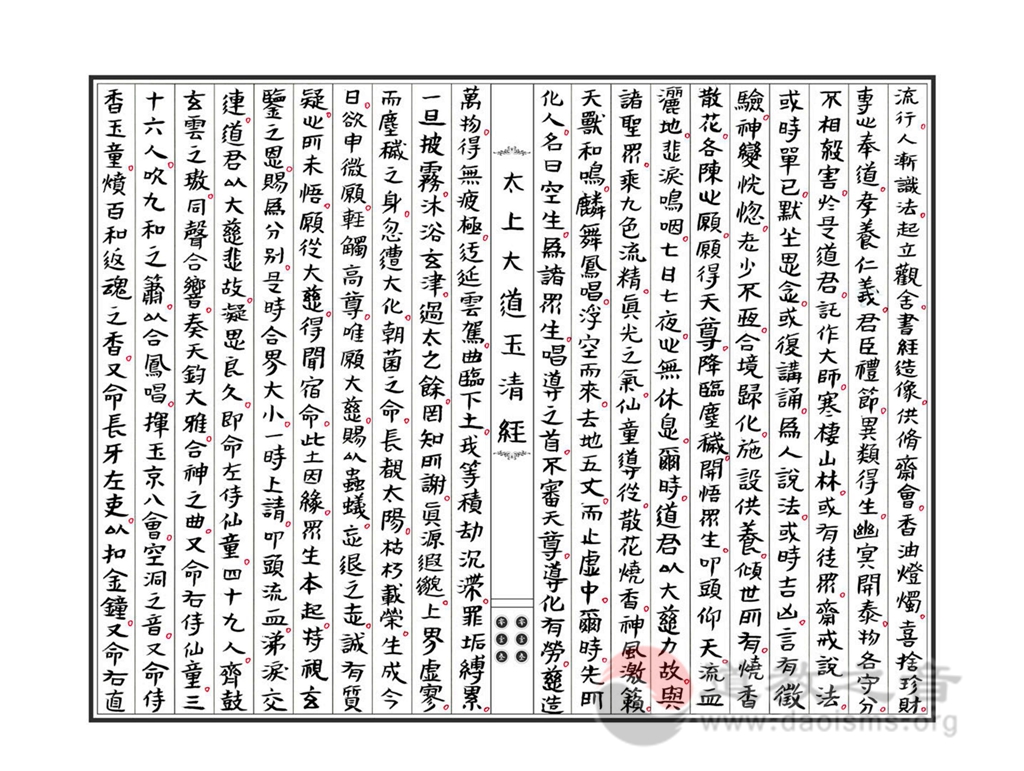 流行人漸識法起立觀舍書經造像供脩齋會香油燈燭喜捨珍財
專心奉道孝養仁義君臣禮節異類得生幽冥開泰物各守分
不相殺害於是道君託作大師寒棲山林或有徒眾齋戒說法
或時單已默坐思念或復講誦為人說法或時吉凶言有徵
驗神變恍惚老少不恆合境歸化施設供養傾世所有燒香
散花各陳心願願得天尊降臨塵穢開悟眾生叩頭仰天流血
灑地悲淚嗚咽七日七夜心無休息爾時道君以大慈力故與
諸聖眾乘九色流精真光之氣仙童導從散花燒香神風激籟
天獸和鳴麟舞鳳唱浮空而來去地五丈而止虛中爾時先所
化人名曰空生為諸眾生唱導之首不審天尊導化有勞慈造
太上大道玉清經
萬物得無疲極迂延雲駕曲臨下土我等積劫沉滯罪垢縛累
一旦披霧沐浴玄津過太之餘罔知所謝真源遐邈上界虛寥
而塵穢之身忽遭大化朝菌之命長覩太陽枯朽載榮生成今
日欲申微願輕觸高尊唯願大慈賜以蟲蟻志退之志誠有質
疑心所未悟願從大慈得聞宿命此土因緣眾生本起特視玄
鑒之恩賜為分别是時合界大小一時上請叩頭流血涕淚交
連道君以大慈悲故凝思良久即命左侍仙童四十九人齊鼓
玄雲之璈同聲合響奏天鈞大雅合神之曲又命右侍仙童三
十六人吹九和之簫以合鳳唱揮玉京八會空洞之音又命侍
香玉童燌百和返魂之香又命長牙左吏以扣金鐘又命右直
道教之音
www.daoisms.org